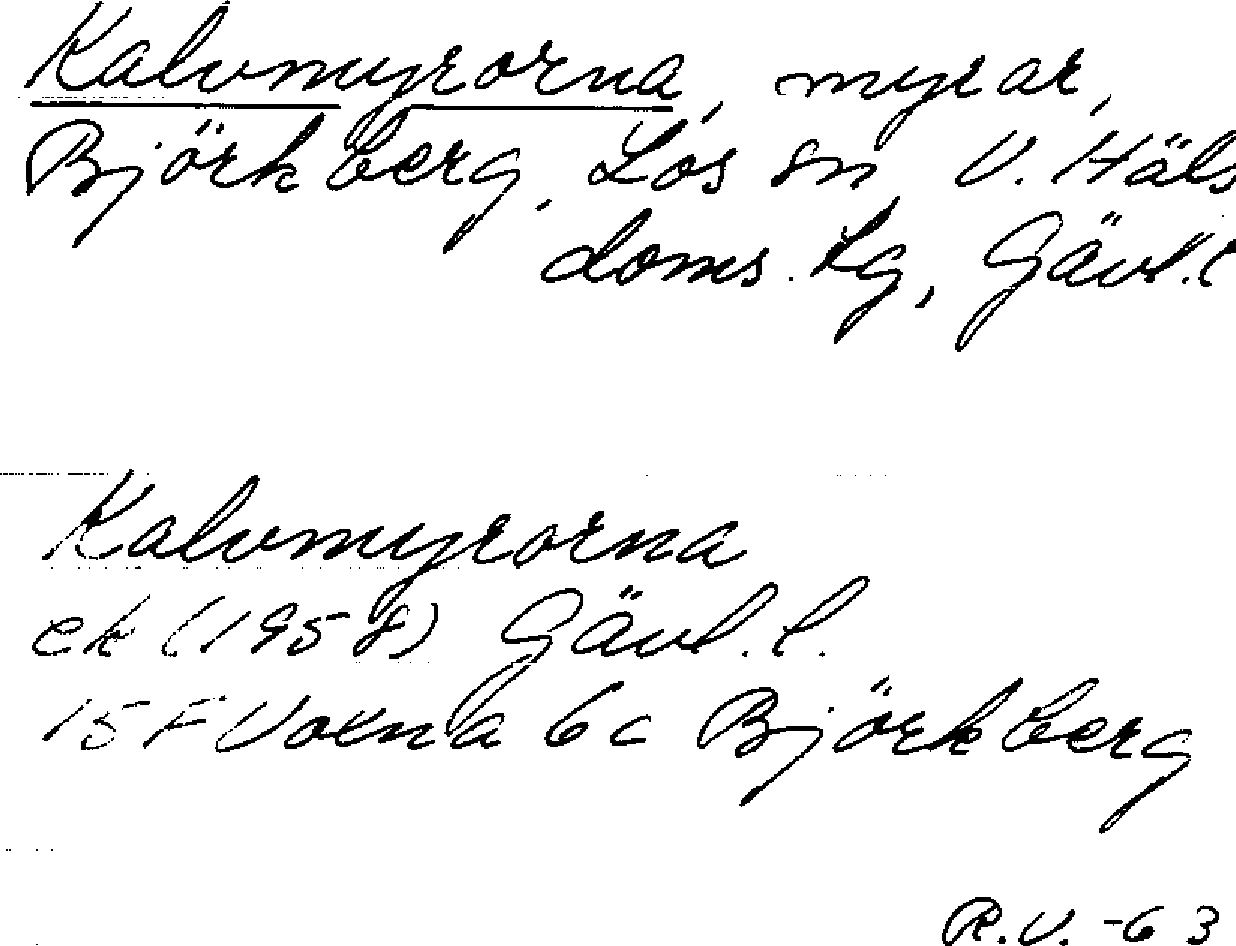 Kalvmyrorna, myrar,
Björkberg, Los sn, V. Häls
doms. lg, Gävl.l
Kalvmyrorna
ek (1958) Gävl.l.
15 F Voxna 6c Björkberg
R.V. -63